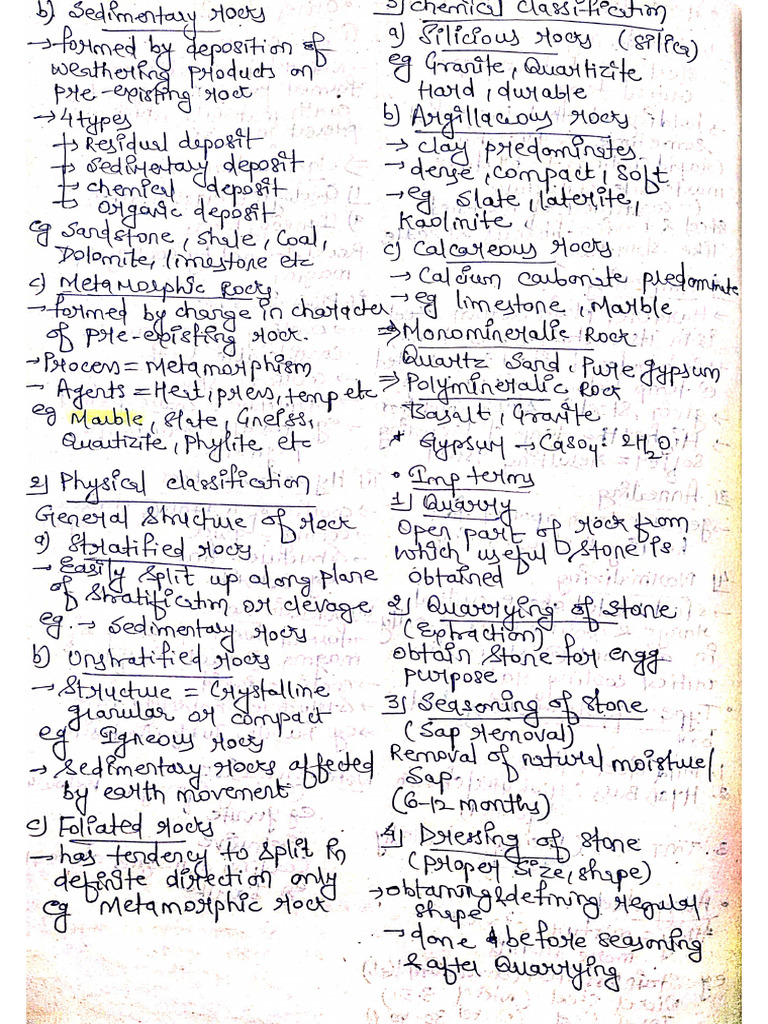 b) Sedimentary rocks
→ formed by deposition of
weathering products on
pre-existing rock
→ 4 types
→ Residual deposit
→ Sedimentary deposit
→ chemical deposit
→ organic deposit
eg Sandstone, shale, Coal,
Dolomite, limestone etc
c) Metamorphic Rocks
→ formed by change in character
of pre-existing rock.
→ Process = Metamorphism
→ Agents = Heat, press, temp etc
eg Marble, Slate, Gneiss,
Quartizite, Phylite etc
2) Physical classification
General Structure of rock
a) Stratified rocks
→ Easily Split up along plane
of Stratification or clevage
eg. → Sedimentary rocks
b) Unstratified rocks
→ Structure = Crystalline
granular or compact
eg Igneous rocks
→ Sedimentary rocks affected
by earth movement
c) Foliated rocks
→ has tendency to split in
definite direction only
eg Metamorphic rock
3) Chemical classification
a) Silicious rocks (Silica)
eg Granite, Quartizite
Hard, durable
b) Argillacious rocks
→ clay predominates.
→ dense, compact, Soft
→ eg Slate, laterite,
Kaolinite
c) Calcareous rocks
→ Calcium carbonate predominate
→ eg limestone, Marble
⇒ Monomineralic Rock
Quartz Sand, Pure gypsum
⇒ Polymineralic Rock
Basalt, Granite
* Gypsum → CaSO4. 2H2O
• Imp terms
1) Quarry
Open part of rock from
which useful stone is
obtained
2) Quarrying of Stone
(Extraction)
obtain Stone for engg
purpose
3) Seasoning of Stone
(Sap removal)
Removal of natural moisture/
Sap.
(6-12 months)
4) Dressing of Stone
(proper size, shape)
→ obtaining & defining regular
shape
→ done & before seasoning
& after Quarrying